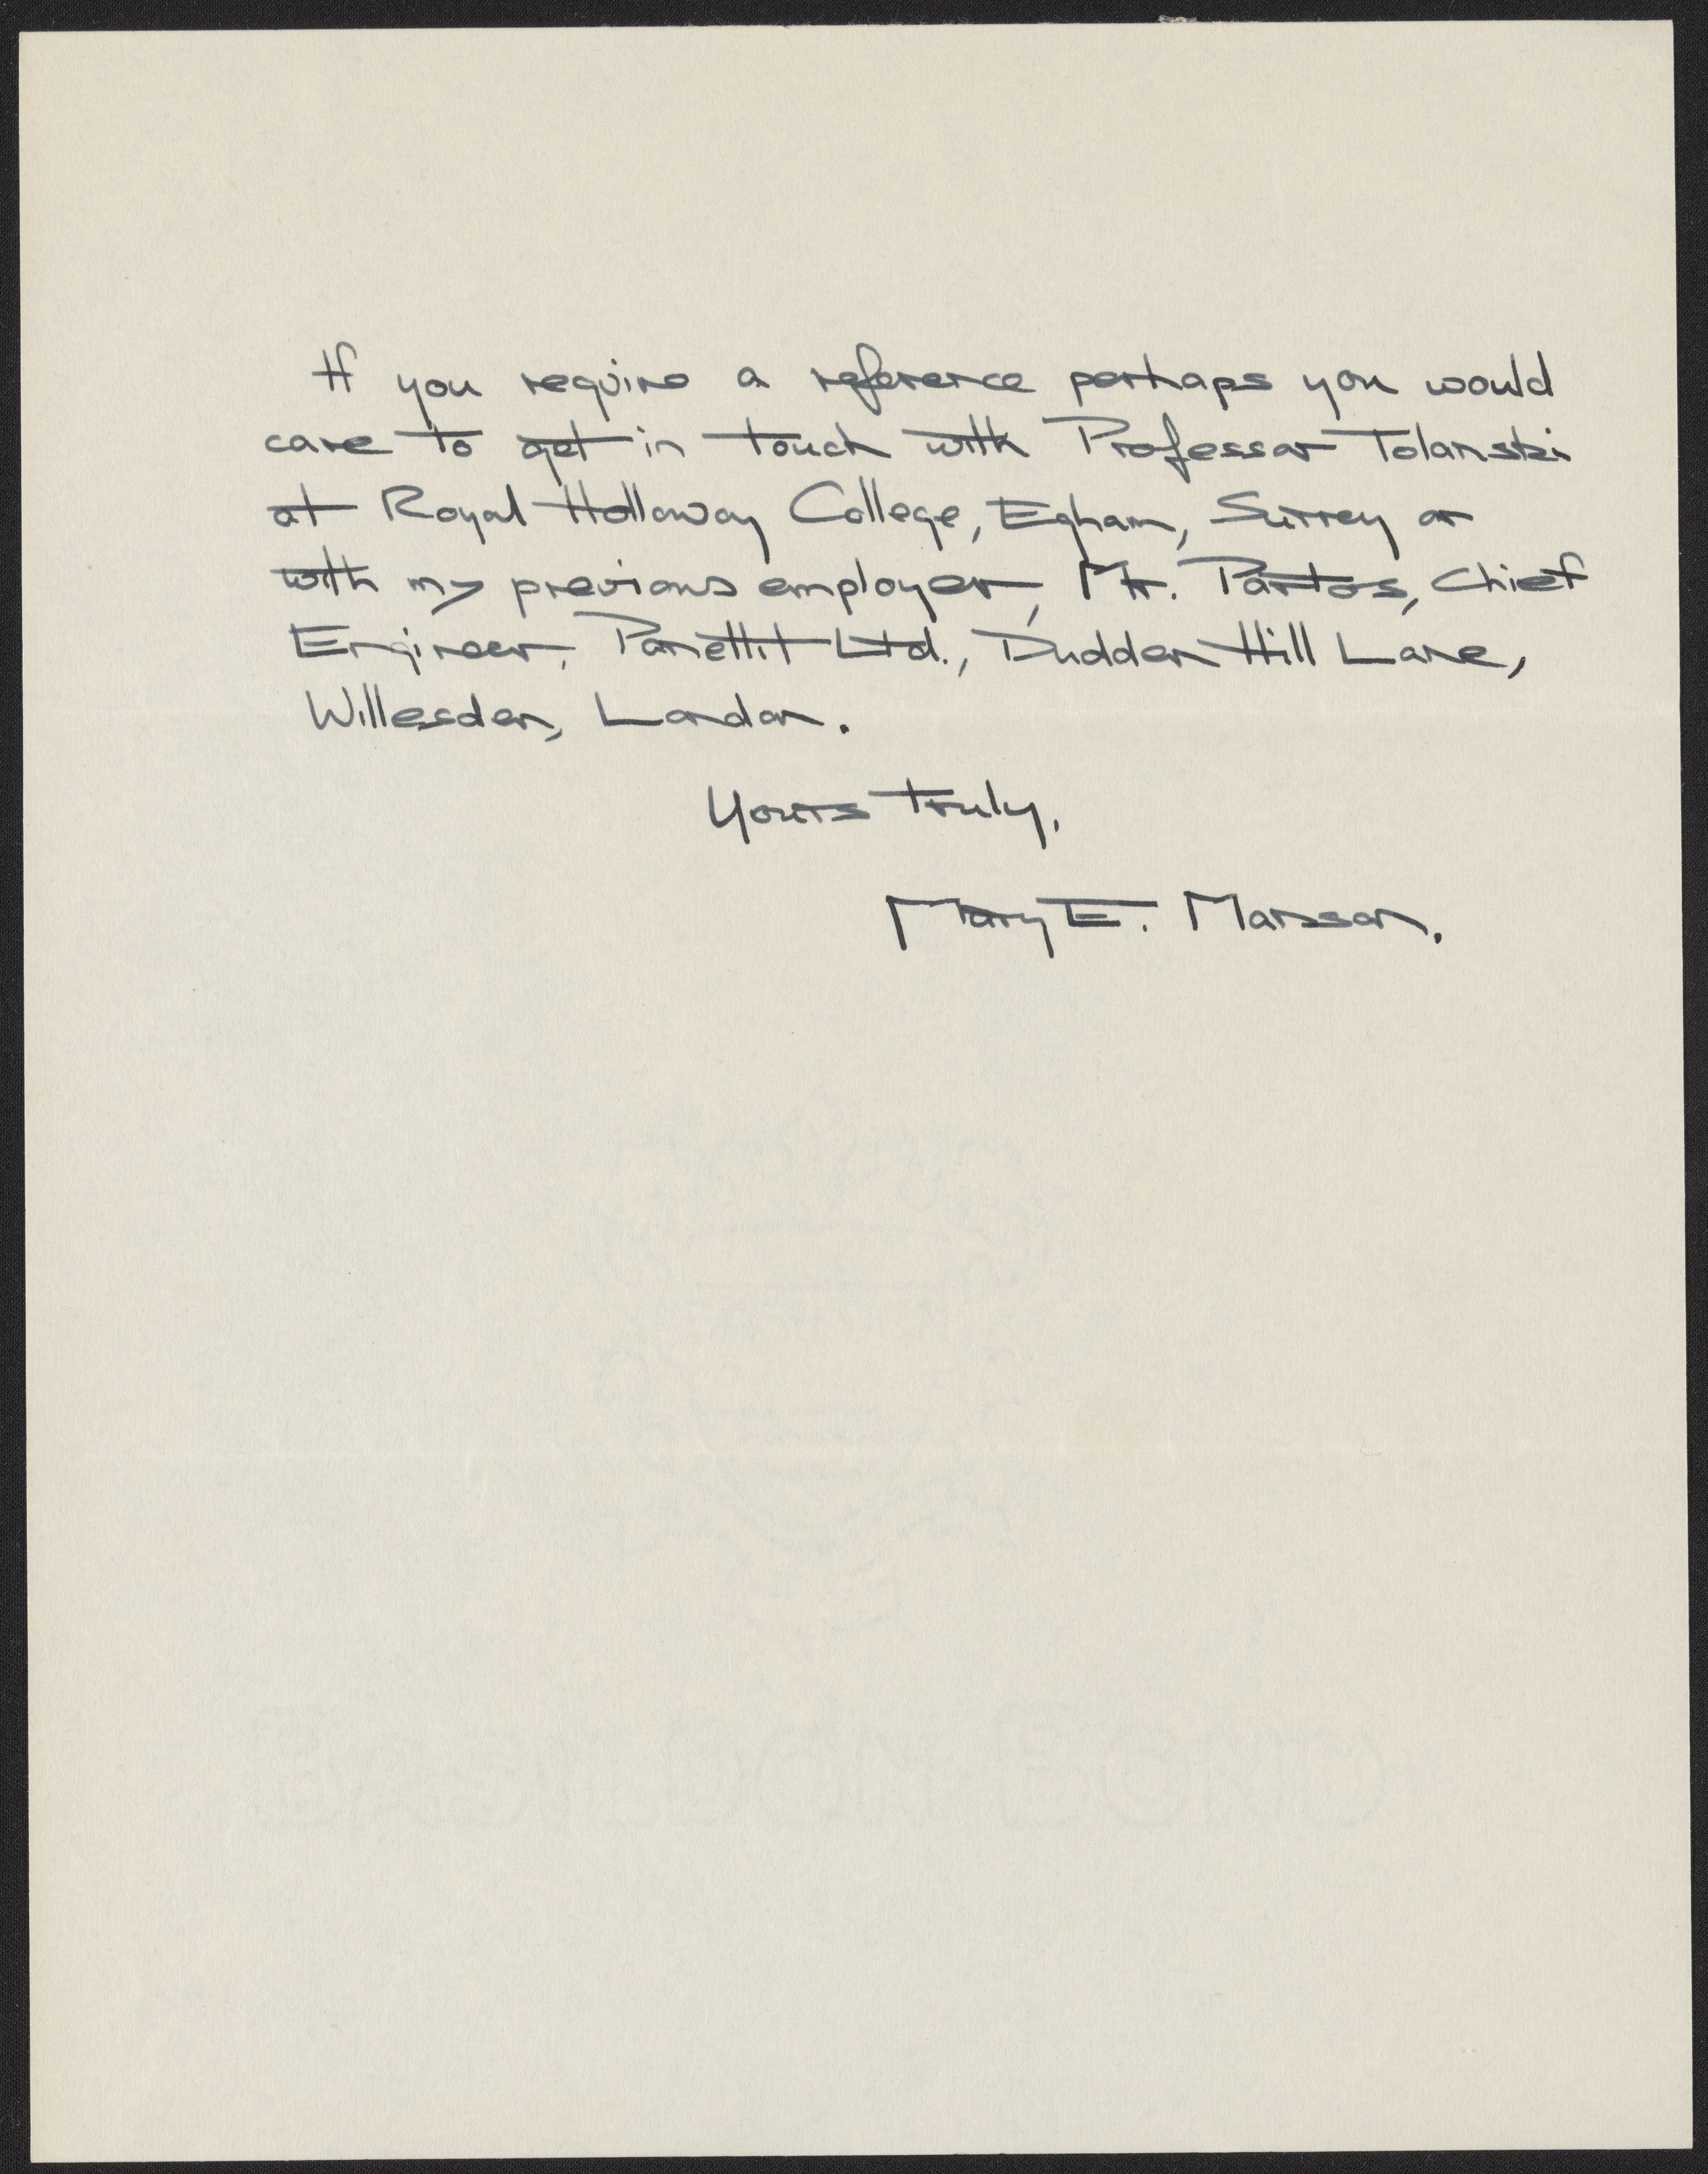 If you require a reference perhaps you would
care to get in touch with Professor Tolanski
at Royal Holloway College, Egham, Surrey or
with my previous employer, Mr. Partos, Chief
Engineer, Panellit Ltd., Dudden Hill Lane,
Willesden, London.
Yours truly,
Mary E. Manson.